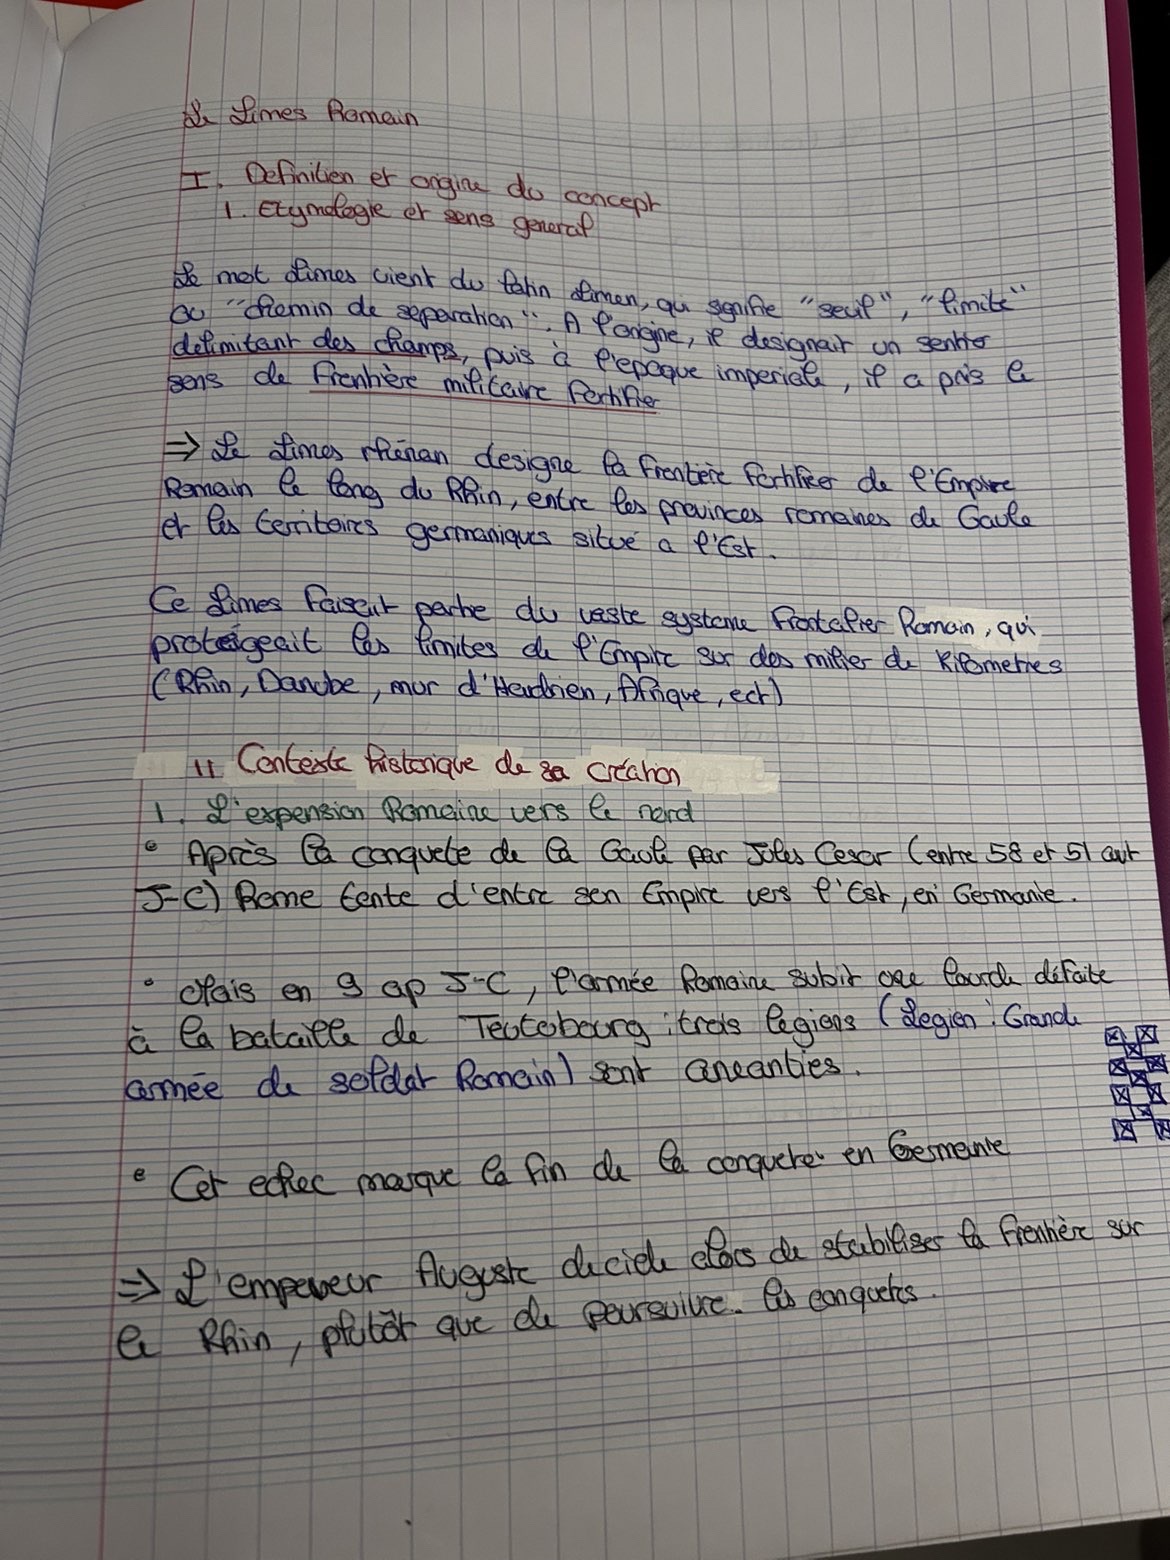 Le Limes Romain
I. Definition et origine du concept
1. Etymologie et sens general
Le mot Limes vient du latin Limen, qui signifie "seuil", "limite"
ou "chemin de separation". A l'origine, il designait un sentier
delimitant des champs, puis à l'epoque imperiale, il a pris le
sens de Frontière militaire fortifier
=> Le Limes rhénan designe la frontière fortifiéer de l'Empire
Romain le long du Rhin, entre les provinces romaines de Gaule
et les territoires germaniques situé a l'Est.
Ce Limes faisait partie du vaste systeme Frontalier Romain, qui
proteigeait les limites de l'Empire sur des milier de Kilometres
(Rhin, Danube, mur d'Hadrien, Afrique, ect)
II Contexte historique de sa création
1. L'expension Romaine vers le nord
• Après la conquete de la Gaule par Jules Cesar (entre 58 et 51 avt
J-C) Rome tente d'entre son Empire vers l'Est, en Germanie.
• Mais en 9 ap J-C, l'armée Romaine subit une lourde défaite
à la bataille de Teutobourg : trois legions (Legion : Grande
armée de soldat Romain) sont aneanties.
• Cet echec marque la fin de la conquete en Germanie
=> L'empereur Auguste decide alors de stabiliser la frontière sur
le Rhin, plutôt que de poursuivre. les conquetes.